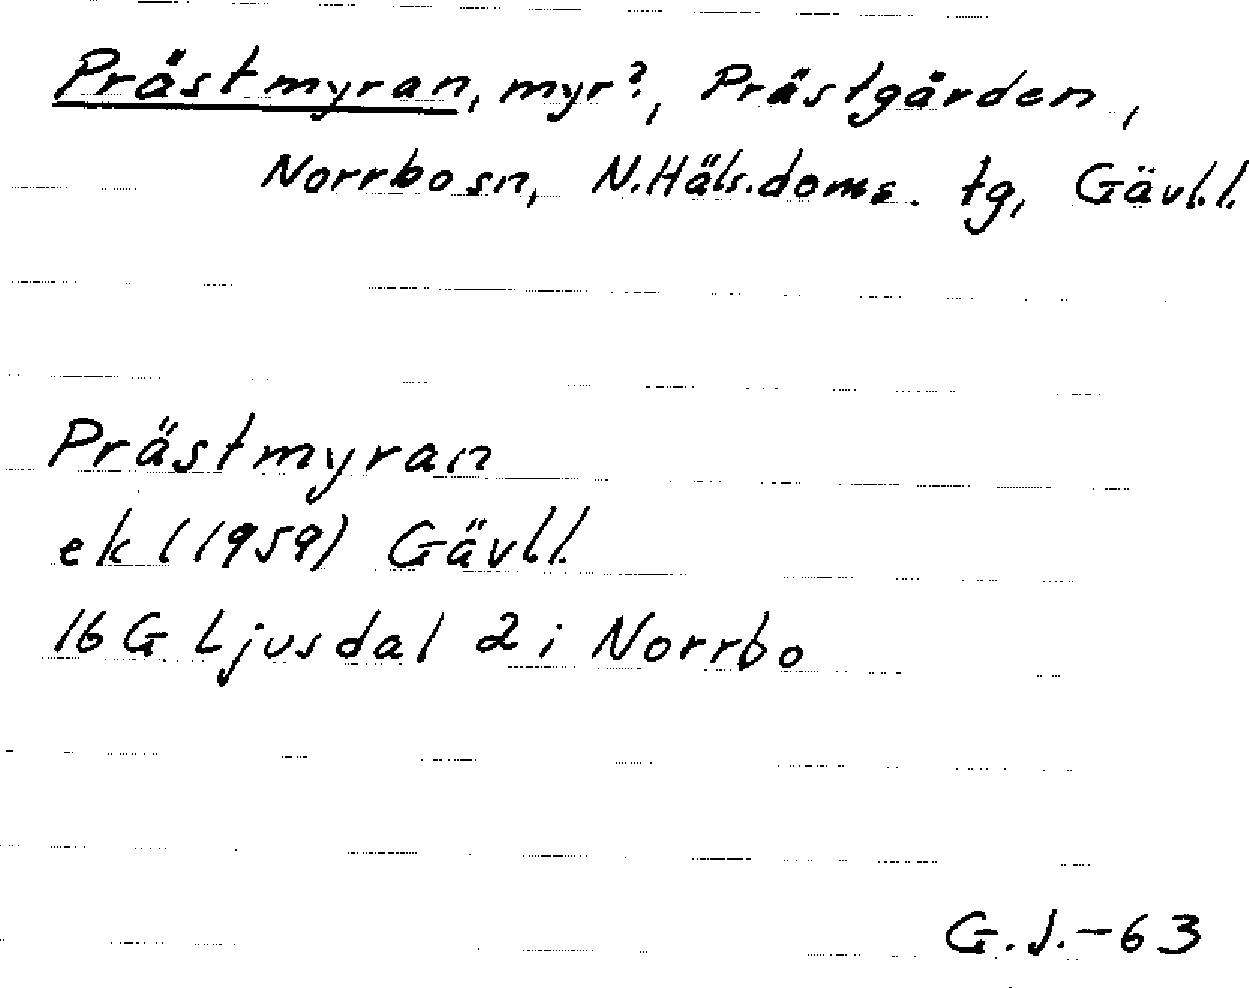 Prästmyran, myr?, Prästgården,
Norrbo sn, N.Häls.doms. tg, Gävl.l.
Prästmyran
ek (1959) Gävl.l.
16 G Ljusdal 2 i Norrbo
G.J.-63